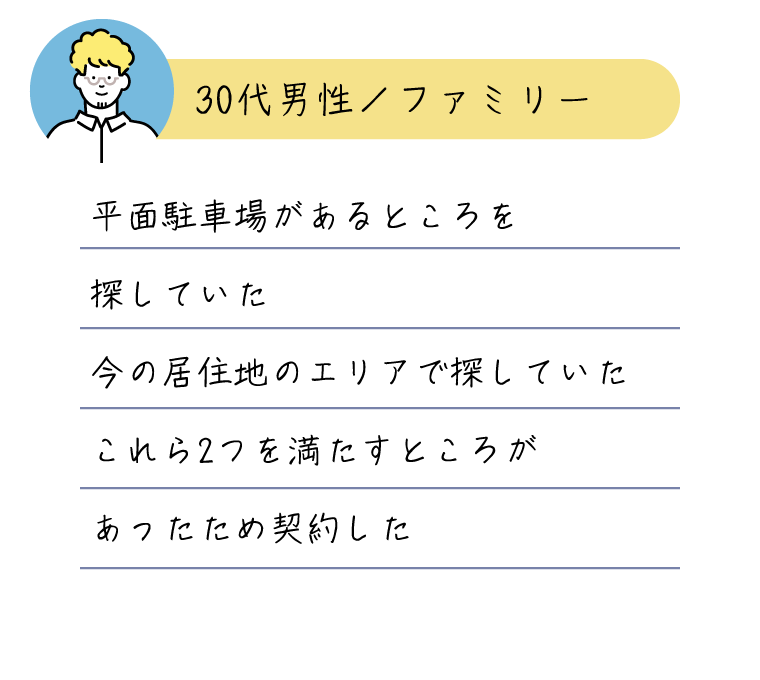 30代男性／ファミリー
平面駐車場があるところを
探していた
今の居住地のエリアで探していた
これら2つを満たすところが
あったため契約した